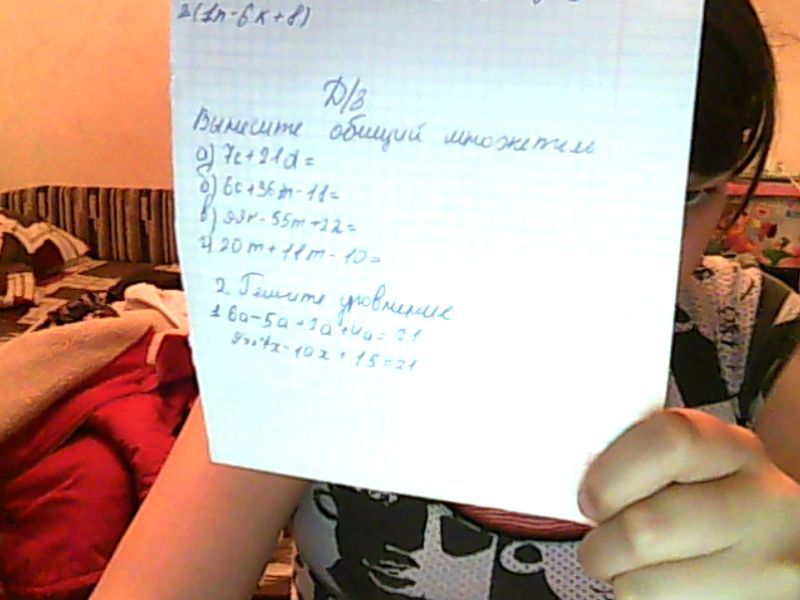 2(1n-6k+8)
Д/з
Вынесите общий множетель
а) 7c+21d=
б) 6c+36m-18=
в) 99r-55m+22=
г) 20m+11m-10=
2. Решите уровнение
1. 6a-5a+2a+4a=21
-10x+15=21